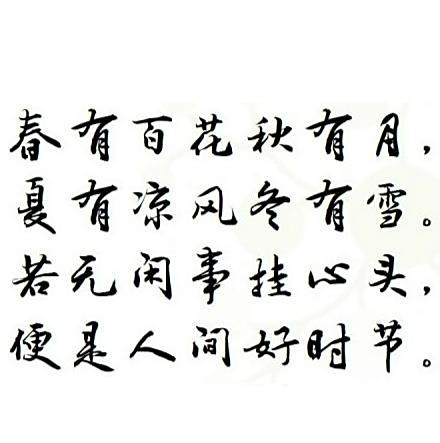 春有百花秋有月，
夏有凉风冬有雪。
若无闲事挂心头，
便是人间好时节。